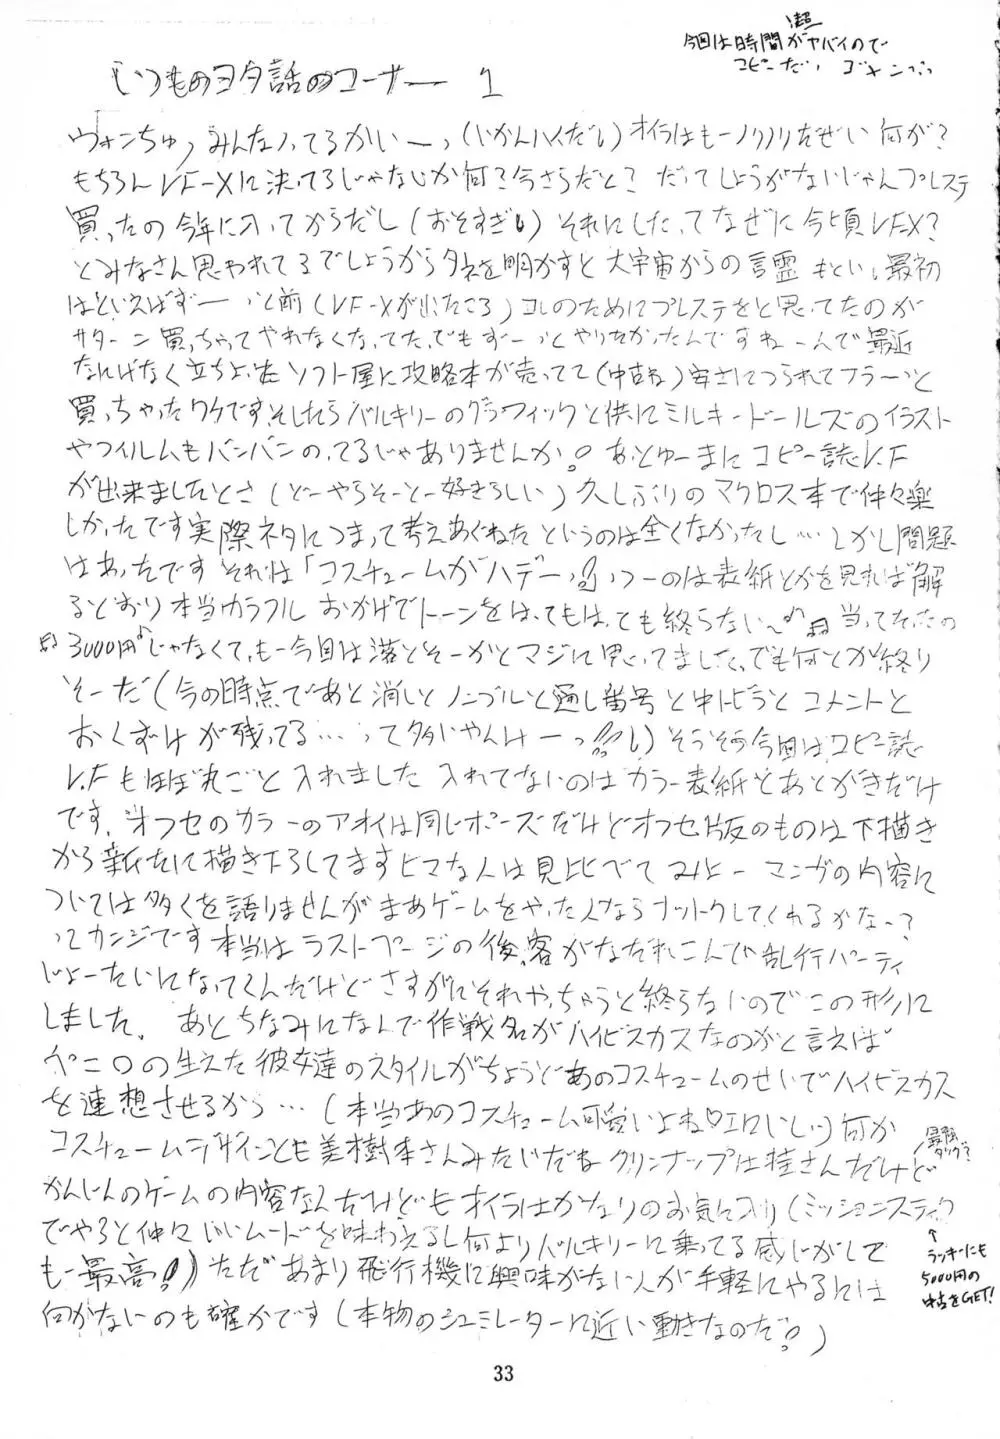 超
今回は時間がヤバイので
コピーだい ゴメンぷぅ
いつものヨタ話のコーナー 1
ヴォンちゅっみんなノってるかいーっ(いかんハイだし)オイラはもーノリノリだぜい何が?
もちろんVF-Xに決ってるじゃないか何?今さらだと?だってしょうがないじゃんプレステ
買ったの今年に入ってからだし(おそすぎい)それにしたってなぜに今頃VF-X?
とみなさん思われてるでしょうからタネを明かすと大宇宙からの言霊もとい、最初
はといえばずーっと前(VF-Xが出たころ)コレのためにプレステをと思ってたのが
サターン買っちゃってやれなくなってた、でもずーっとやりたかったんですねーんで最近
なにげなく立ちよったソフト屋に攻略本が売ってて(中古ね)安さにつられてフラーっと
買っちゃったワケです、そしたらバルキリーのグラフィックと供にミルキードールズのイラスト
やフィルムもバンバンのってるじゃありませんか!あっとゆーまにコピー誌V.F
が出来ましたとさ(どーやらそーとー好きらしい)久しぶりのマクロス本で仲々楽
しかったです実際ネタにつまって考えあぐねたというのは全くなかったし…しかし問題
はあったです それは「コスチュームがハデーっ!」っつーのは表紙とかを見れば解
るとおり本当カラフル おかげでトーンをはってもはっても終らない〜♪♫当ってくだの
♫3000円♪じゃなくて、もー今回は落とそーかとマジに思ってました、でも何とか終り
そーだ(今の時点であと消しとノンブルと通し番号と中トビラとコメントと
おくずけが残ってる…って多いやんけーっ!!い)そうそう今回はコピー誌
V.Fもほぼ丸ごと入れました 入れてないのはカラー表紙とあとがきだけ
です、オフセのカラーのアオイは同じポーズだけどオフセ版のものは下描き
から新たに描き下ろしてますヒマな人は見比べてみよー マンガの内容に
ついては多くを語りませんがまあゲームをやった人ならナットクしてくれるかなー?
ってカンジです本当はラストページの後、客がなだれこんで乱行パーティ
じょーたいになってくんだけどさすがにそれやっちゃうと終らないのでこの形に
しました。 あとちなみになんで作戦名がハイビスカスなのかと言えば
ペニ〇の生えた彼女達のスタイルがちょうどあのコスチュームのせいでハイビスカス
を連想させるから…(本当あのコスチューム可愛いよね♡エロいしい)何か
コスチュームデザインとも美樹本さんみたいだねクリンナップは桂さんだけど
かんじんのゲームの内容なんだけどもオイラはかなりのお気に入り(ミッションスティック
でやると仲々いいムードを味わえるし何よりバルキリーに乗ってる感じがして
もー最高!)ただあまり飛行機に興味がない人が手軽にやるには
何がないのも確かです(本物のシュミレーターに近い動きなのだ!)
最強タッグ?
↑
ラッキーにも
5000円の
中古をGET!
33